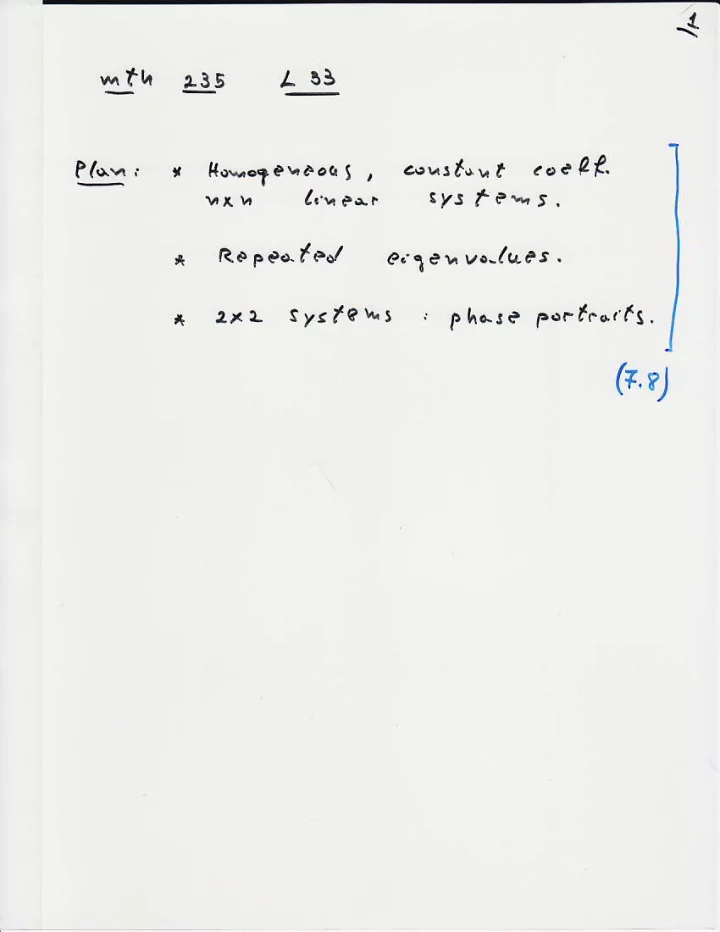 1
mth 235 L 33
Plan: * Homogeneous, constant coeff.
nxn linear systems.
* Repeated eigenvalues.
* 2x2 systems : phase portraits.
(7.8)